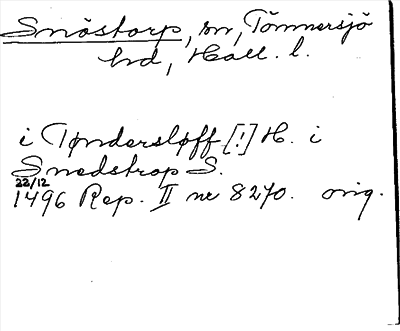 Snöstorp, sn, Tönnersjö
hd, Hall. l.
i Tøndersløff [!] H. i
Snedstrop S.
22/12
1496 Rep. II nr 8270. orig.